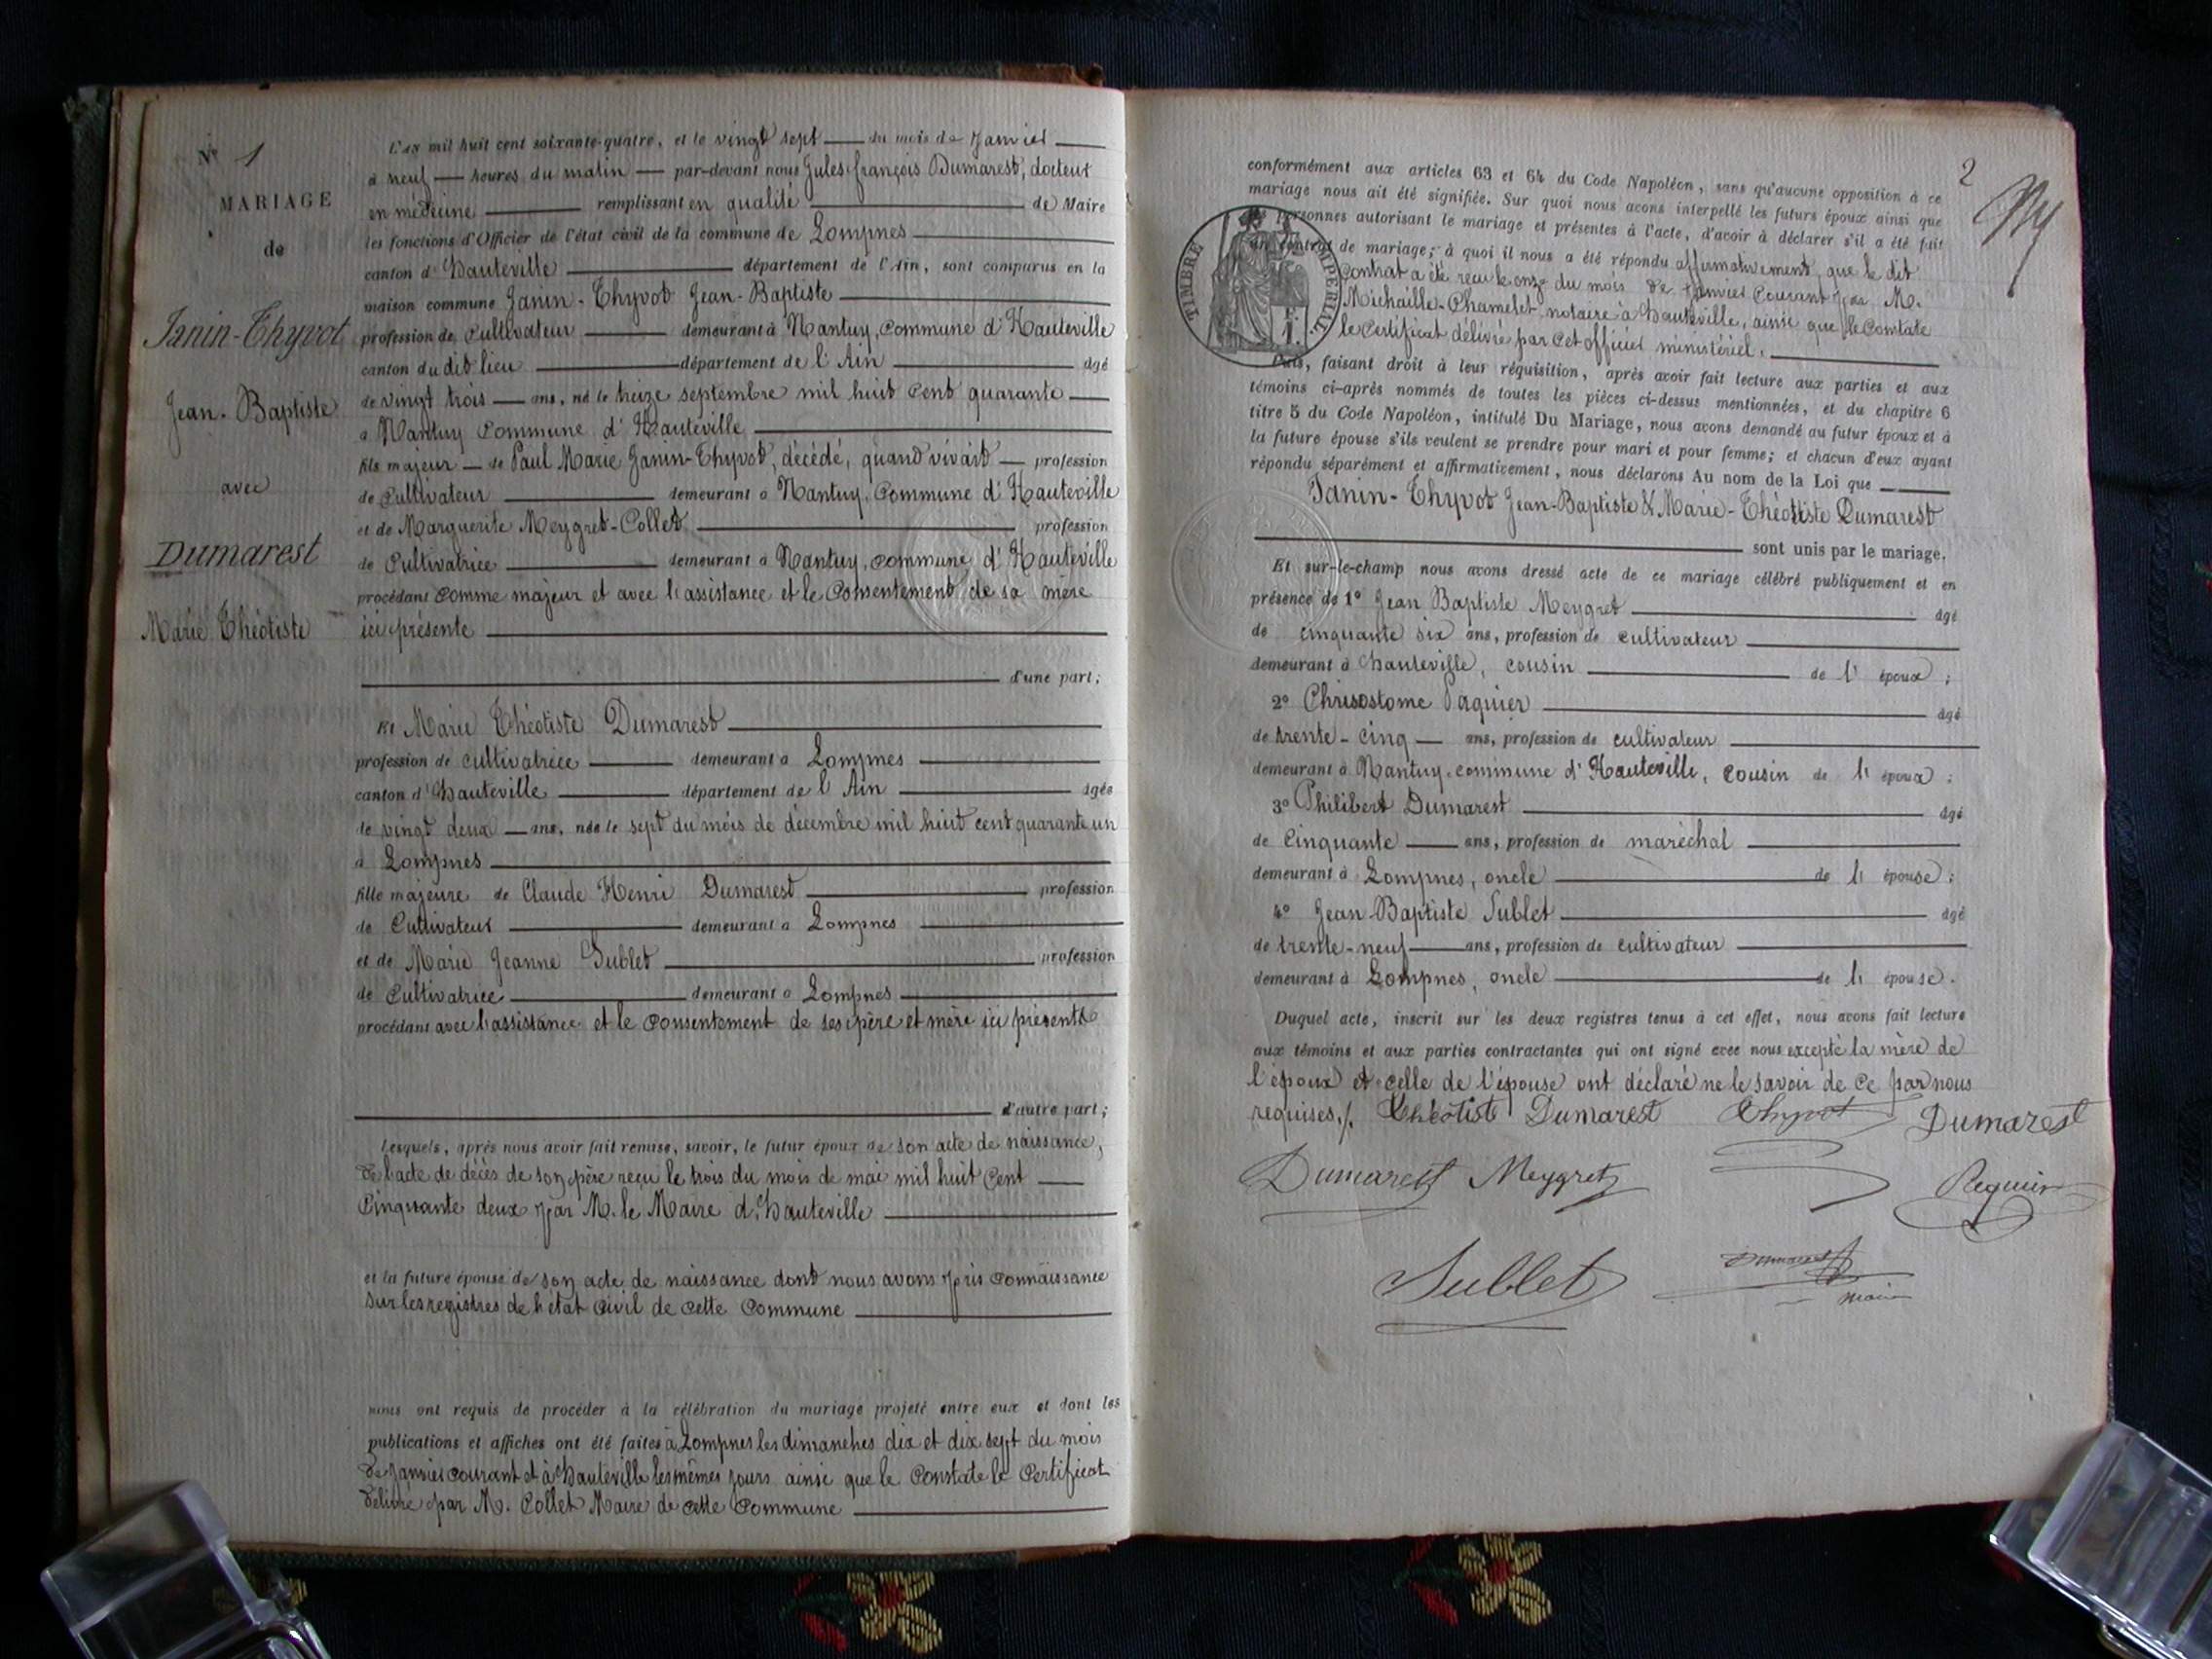 N° 1
MARIAGE
de
Janin-Thyvot
Jean-Baptiste
avec
Dumarest
Marie Théotiste
L'an mil huit cent soixante-quatre, et le vingt sept du mois de Janvier
à neuf heures du matin par-devant nous Jules-françois Dumarest, docteur
en médecine remplissant en qualité de Maire
les fonctions d'Officier de l'état civil de la commune de Lompnes
canton d'hauteville département de l'Ain, sont comparus en la
maison commune Janin-Thyvot Jean-Baptiste
profession de Cultivateur demeurant à Nantuy, Commune d'Hauteville
canton du dit lieu département de l'Ain âgé
de vingt trois ans, né le treize septembre mil huit cent quarante
à Nantuy Commune d'Hauteville
fils majeur de Paul Marie Janin-Thyvot, décédé, quand vivait profession
de Cultivateur demeurant à Nantuy, Commune d'Hauteville
et de Marguerite Meygret-Collet profession
de Cultivatrice demeurant à Nantuy, commune d'Hauteville
procédant comme majeur et avec l'assistance et le Consentement de sa mère
ici présente
d'une part;
Et Marie Théotiste Dumarest
profession de cultivatrice demeurant à Lompnes
canton d'hauteville département de l'Ain âgée
de vingt deux ans, née le sept du mois de décembre mil huit cent quarante un
à Lompnes
fille majeure de Claude Henri Dumarest profession
de Cultivateur demeurant à Lompnes
et de Marie Jeanne Sublet profession
de Cultivatrice demeurant à Lompnes
procédant avec l'assistance et le Consentement de ses père et mère ici présents
d'autre part;
Lesquels, après nous avoir fait remise, savoir, le futur époux de son acte de naissance,
de l'acte de décès de son père reçu le trois du mois de mai mil huit Cent
Cinquante deux par M. le Maire d'hauteville
et la future épouse de son acte de naissance dont nous avons pris connaissance
sur les registres de l'état Civil de cette Commune
nous ont requis de procéder à la célébration du mariage projeté entre eux et dont les
publications et affiches ont été faites à Lompnes les dimanches dix et dix sept du mois
de Janvier courant et à hauteville les mêmes jours ainsi que le Constate le Certificat
délivré par M. Collet Maire de cette Commune
2
conformément aux articles 63 et 64 du Code Napoléon, sans qu'aucune opposition à ce
mariage nous ait été signifiée. Sur quoi nous avons interpellé les futurs époux ainsi que
les personnes autorisant le mariage et présentes à l'acte, d'avoir à déclarer s'il a été fait
un contrat de mariage; à quoi il nous a été répondu affirmativement, que le dit
Contrat a été reçu le onze du mois de Janvier Courant par M.
Michaille-Chamelet notaire à hauteville, ainsi que le Constate
le Certificat délivré par cet officier ministériel.
TIMBRE IMPERIAL
Puis, faisant droit à leur réquisition, après avoir fait lecture aux parties et aux
témoins ci-après nommés de toutes les pièces ci-dessus mentionnées, et du chapitre 6
titre 5 du Code Napoléon, intitulé Du Mariage, nous avons demandé au futur époux et à
la future épouse s'ils veulent se prendre pour mari et pour femme; et chacun d'eux ayant
répondu séparément et affirmativement, nous déclarons Au nom de la Loi que
Janin-Thyvot Jean-Baptiste & Marie-Théotiste Dumarest
sont unis par le mariage.
Et sur-le-champ nous avons dressé acte de ce mariage célébré publiquement et en
présence de 1° Jean Baptiste Meygret âgé
de cinquante six ans, profession de cultivateur
demeurant à hauteville, cousin de l'époux;
2° Chrisostome Paquier âgé
de trente-cinq ans, profession de cultivateur
demeurant à Nantuy commune d'Hauteville, cousin de l'époux;
3° Philibert Dumarest âgé
de Cinquante ans, profession de maréchal
demeurant à Lompnes, oncle de l'épouse;
4° Jean Baptiste Sublet âgé
de trente-neuf ans, profession de cultivateur
demeurant à Lompnes, oncle de l'épouse.
Duquel acte, inscrit sur les deux registres tenus à cet effet, nous avons fait lecture
aux témoins et aux parties contractantes qui ont signé avec nous excepté la mère de
l'époux et celle de l'épouse ont déclaré ne le savoir de ce par nous
requises./. Théotiste Dumarest Thyvot Dumarest
Dumarest Meygret
Sublet Dumarest
maire